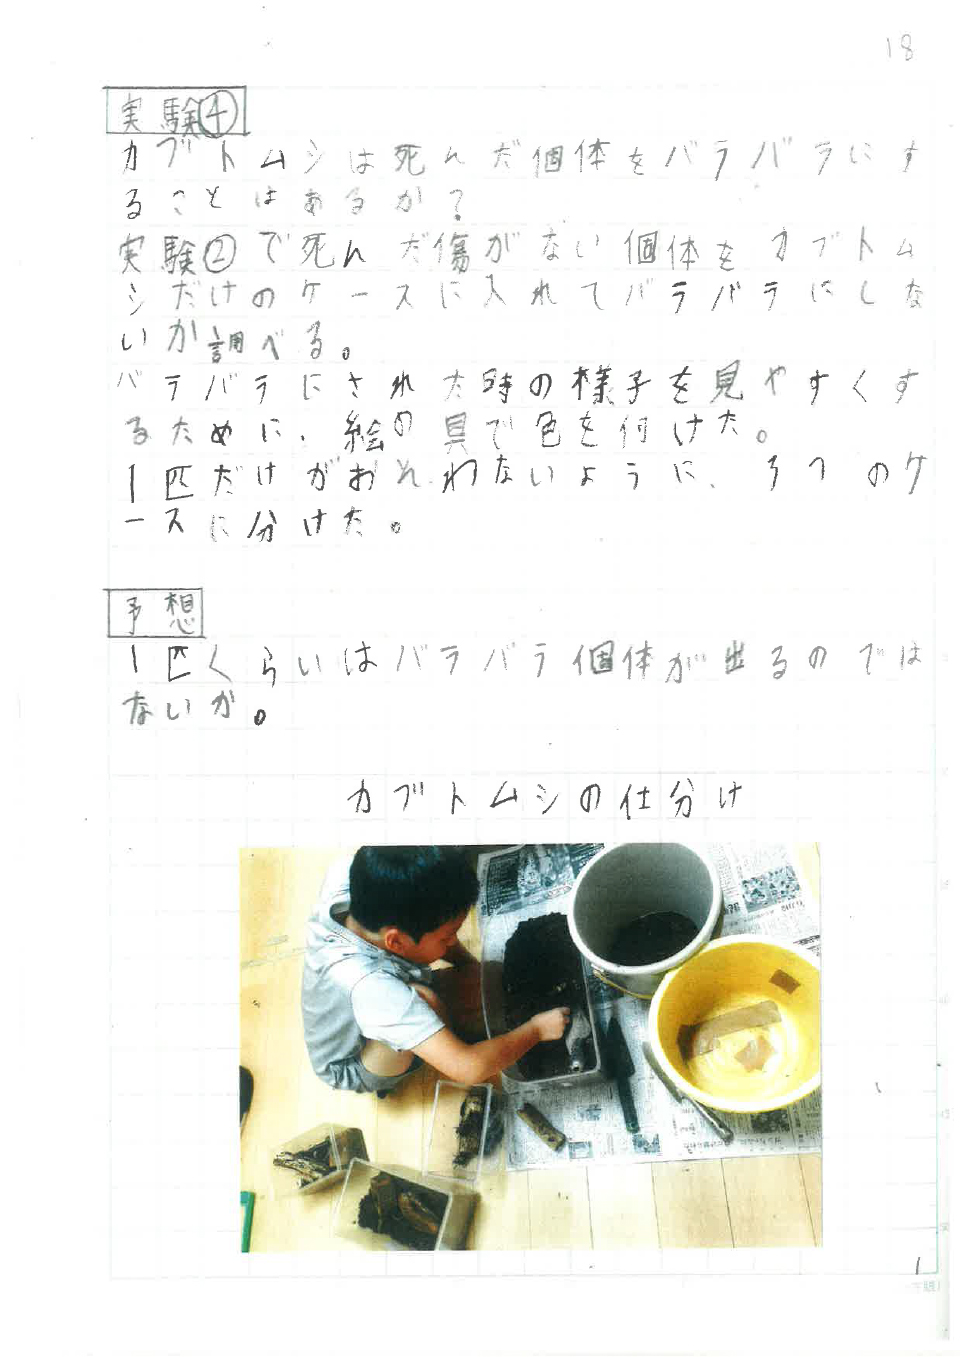 18
実験④
カブトムシは死んだ個体をバラバラにす
ることはあるか?
実験②で死んだ傷がない個体をカブトム
シだけのケースに入れてバラバラにしな
いか調べる。
バラバラにされた時の様子を見やすくす
るために、絵の具で色を付けた。
1匹だけがおそわないように、3つのケ
ースに分けた。
予想
1匹くらいはバラバラ個体が出るのでは
ないか。
カブトムシの仕分け